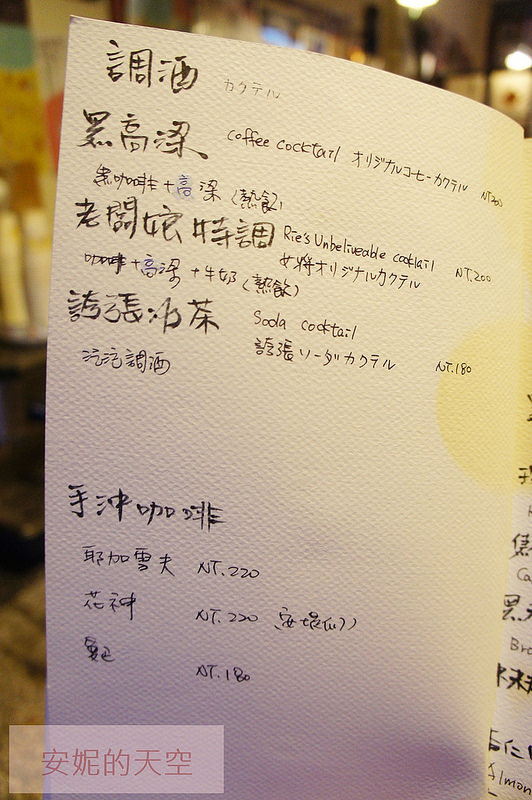 調酒 カクテル
黑高梁 coffee cocktail オリジナルコーヒーカクテル NT.200
黑咖啡+高梁(熱飲)
老闆娘特調 Rie's Unbeliveable cocktail NT.200
女将オリジナルカクテル
咖啡+高梁+牛奶(熱飲)
誇張冰茶 Soda cocktail
誇張ソーダカクテル NT.180
汽泡調酒
手沖咖啡
耶加雪夫 NT.220
花神 NT.220
NT.180
安妮的天空